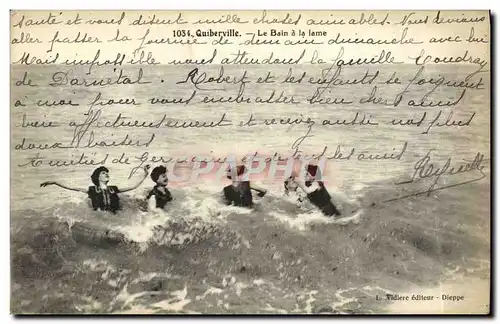 santé et vous disent mille choses aimables. Nous devions
1034. Quiberville. — Le Bain à la lame
aller passer la journée de demain dimanche avec lui
Mais impossible nous attendons la famille Coudray
de Darnétal. Robert et les enfants se joignent
à moi pour vous embrasser bien chers amis
bien affectueusement et recevez aussi nos plus
doux baisers
Amitiés de Germaine et de tous les amis
CPARAMA
L. Vidiere éditeur - Dieppe